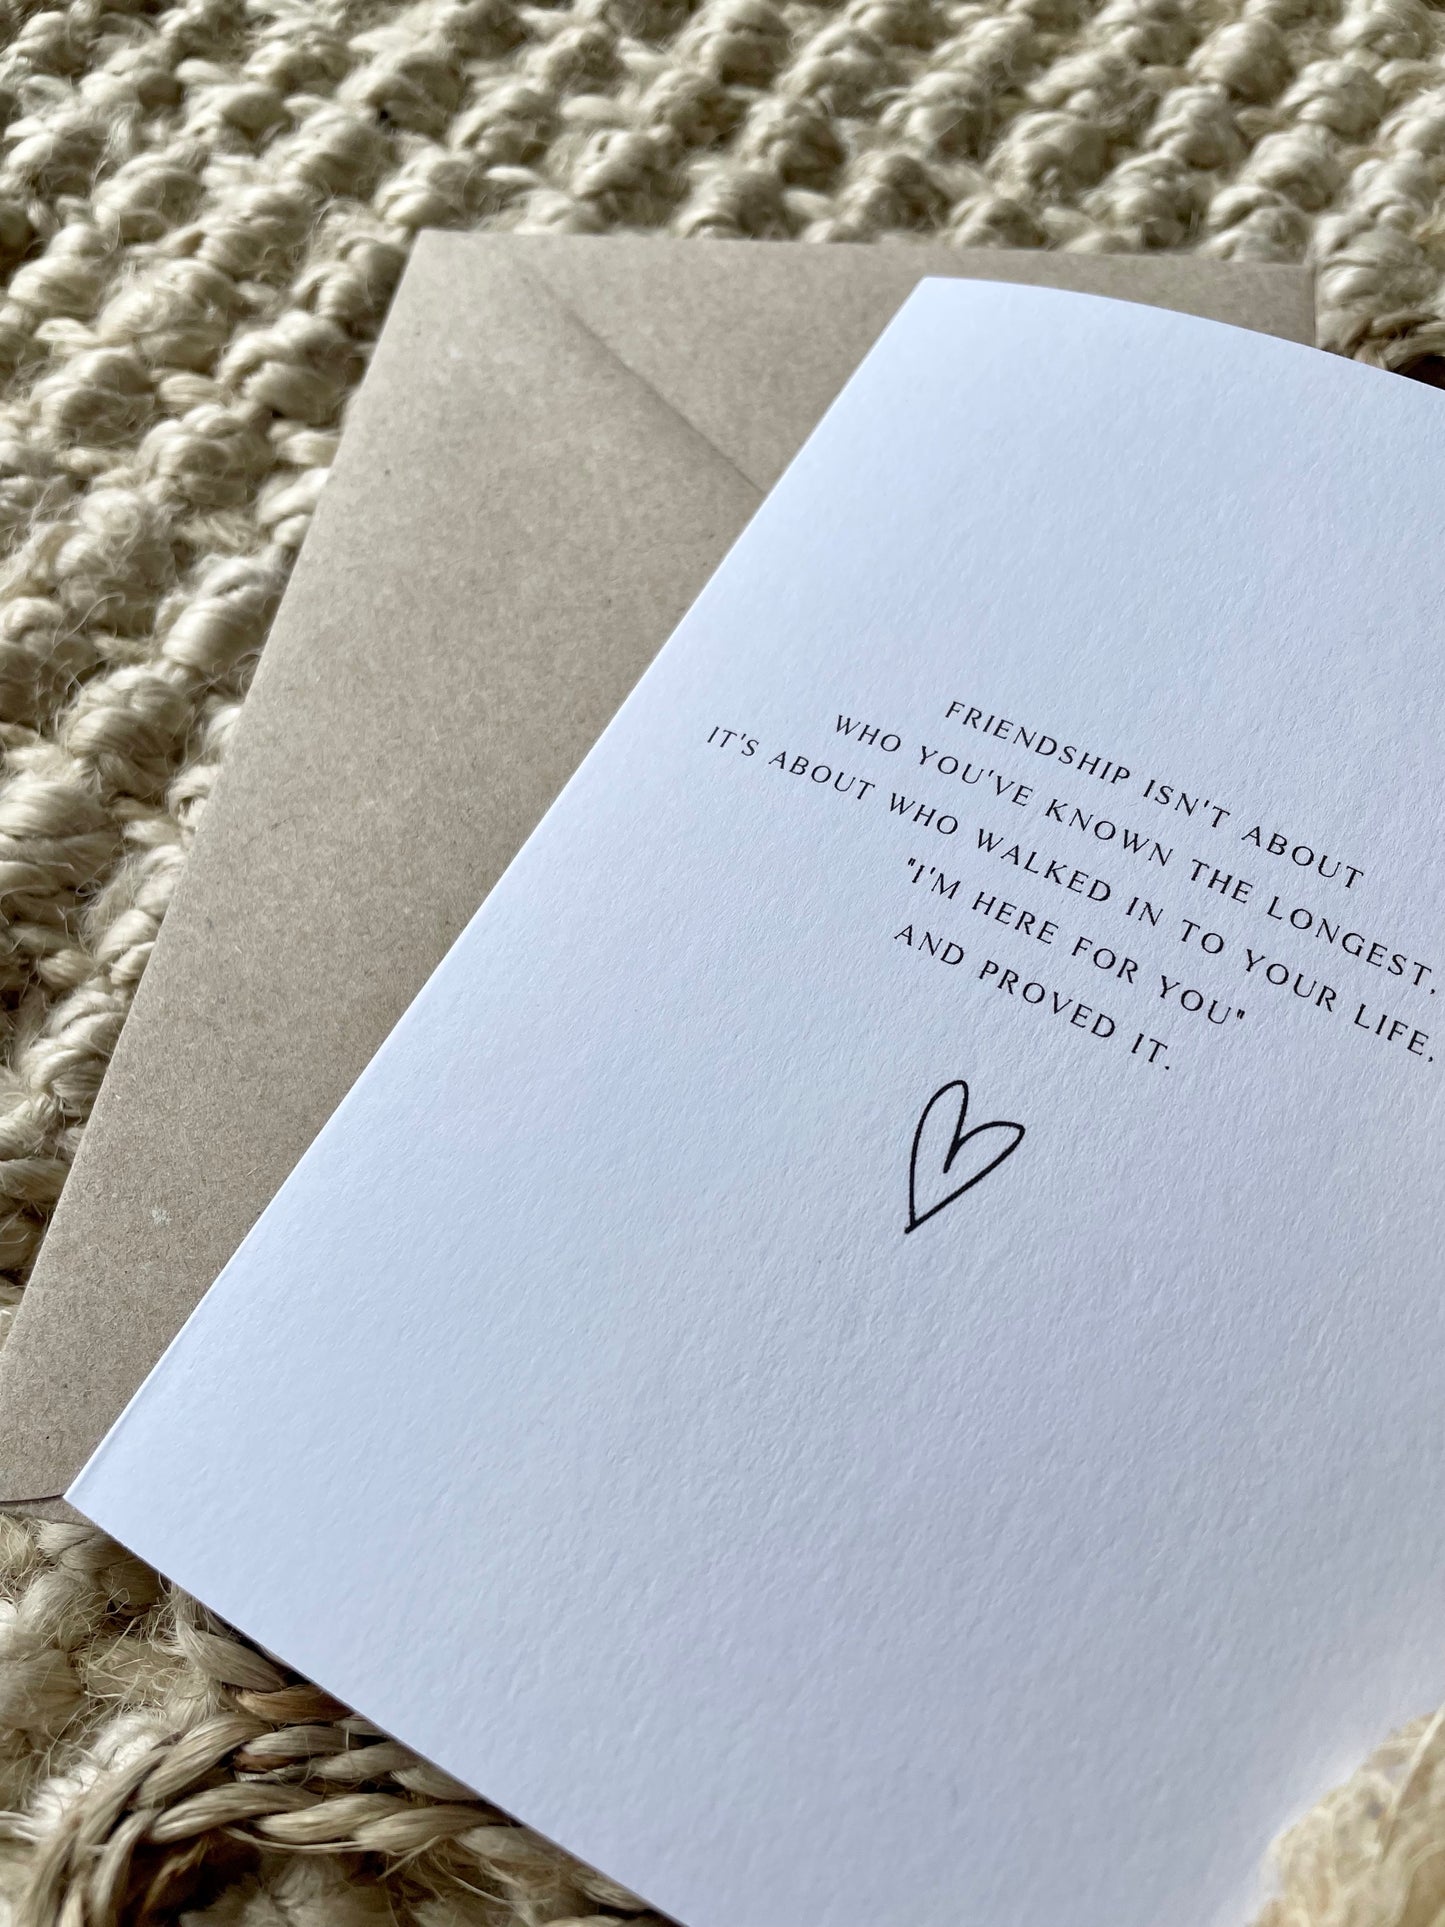 FRIENDSHIP ISN'T ABOUT
WHO YOU'VE KNOWN THE LONGEST.
IT'S ABOUT WHO WALKED IN TO YOUR LIFE,
"I'M HERE FOR YOU"
AND PROVED IT.